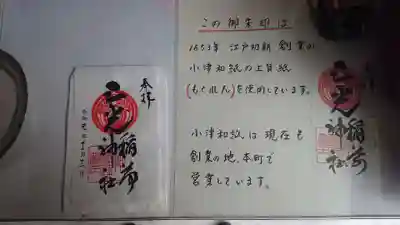 奉拝
三光稲荷
神社
この御朱印は
1653年 江戸初期 創業の
小津和紙の上質紙
(もくれん)を使用しています。
小津和紙は現在も
創業の地、本町で
営業しています。
稲荷
神社